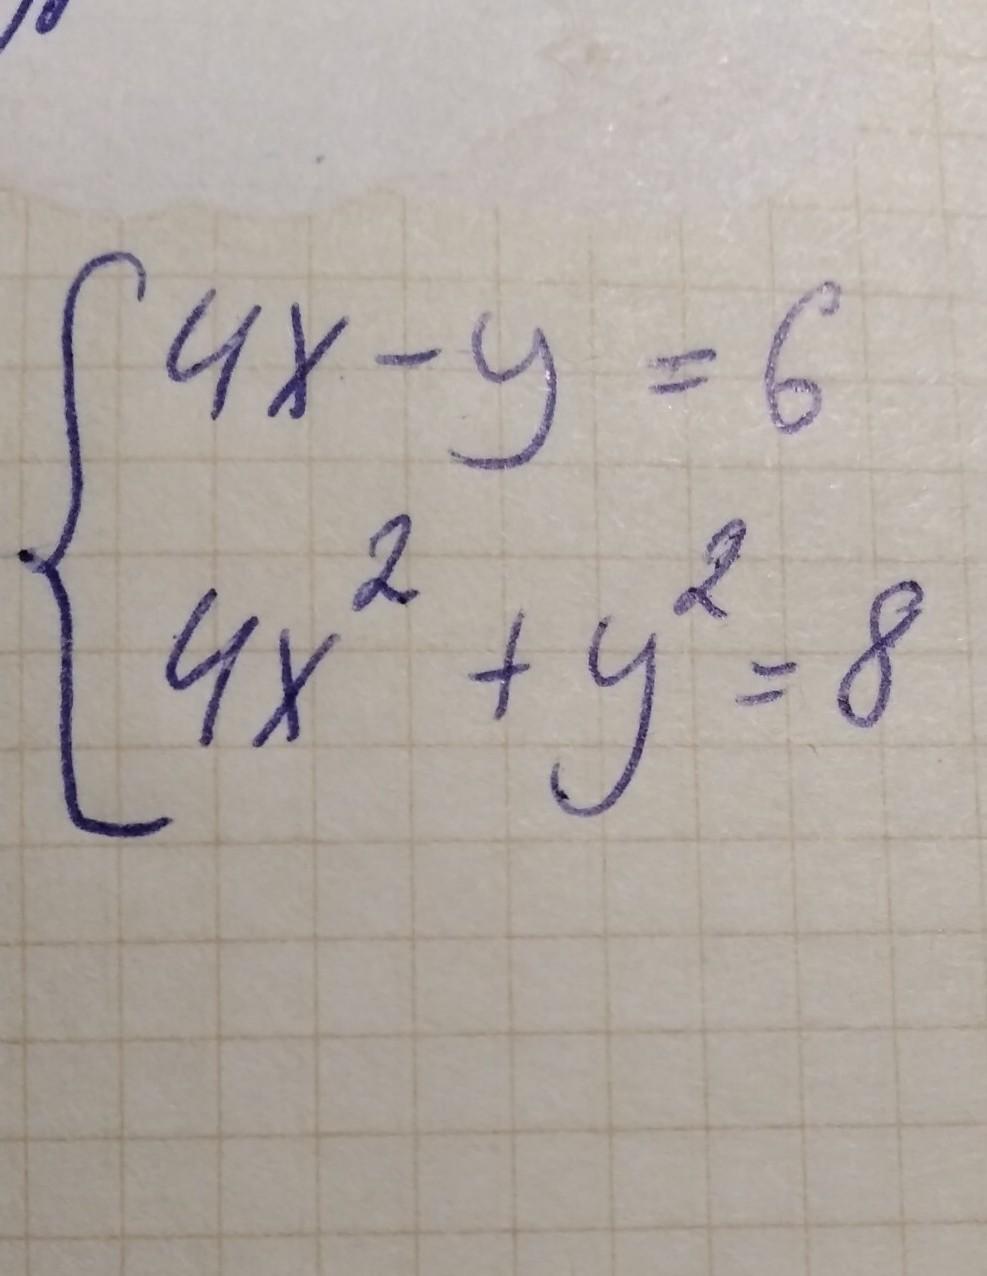 4x - y = 6
4x² + y² = 8